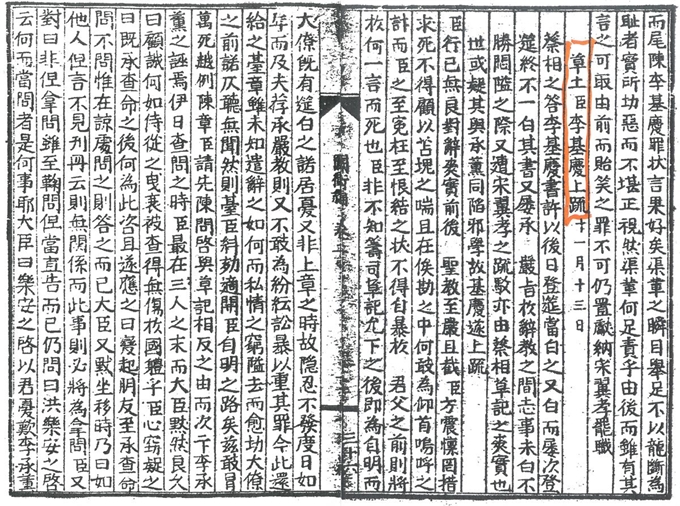 而尾陳李基慶罪狀言果好矣渠輩之瞬目舉足不以龍斷為
恥者實所切惡而不堪正視然渠輩何足責乎由後而雖有其
言之可取由前而貽笑之罪不可仍置獻納宋翼孝罷職
草土臣李基慶上疏 十一月十三日
蔡相之答李基慶書許以後日登筵當白之又白而屢次登
筵終不一白其書又屢承 嚴旨核辭教之間志事未白不
勝悶隘之際又遭宋翼孝之疏駁亦由蔡相草記之爽實也
世或疑其與承薰同陷邪學故基慶遂上疏
臣行已無良對辭爽實前後 聖教至嚴且截臣方震慄罔措
求死不得顧以苫塊之喘且在俟勘之中何敢為仰首鳴呼之
計而臣之至寃枉至悵結之狀不得自暴於 君父之前則將
於何一言而死也 臣非不知籌司草記允下之後即為自明而
闢衛編
大僚旣有筵白之諾居憂又非上章之時故隱忍不發度日如
年而及夫荐承嚴教則又不敢為紛紜訟暴以重其罪今此還
給之臺章雖未知遣辭之如何而私情之窮隘去而愈切大僚
之前諾仄聽無聞然則臺臣糾劾適開臣自明之路矣茲敢冒
萬死越例陳章臣請先陳問啓與草記相反之由而次于李承
薰之誣焉伊日查問之時臣最在三人之末而大臣默然良久
曰顧議何如侍從之曳裏被查得無傷於國體乎臣心竊疑之
曰既承查命之後何為此咨且遂應之曰變起朋友至承查命
問不問惟在諒處問之則答之而已大臣又默坐移時乃曰如
他人但言不見刊冊云則無關係而此事則必將為拿問臣又
對曰非但拿問雖至鞫問但當直告而已仍問曰洪樂安之啓
云何而當問者是何事耶大臣曰樂安之啓以君憂歎李承薰